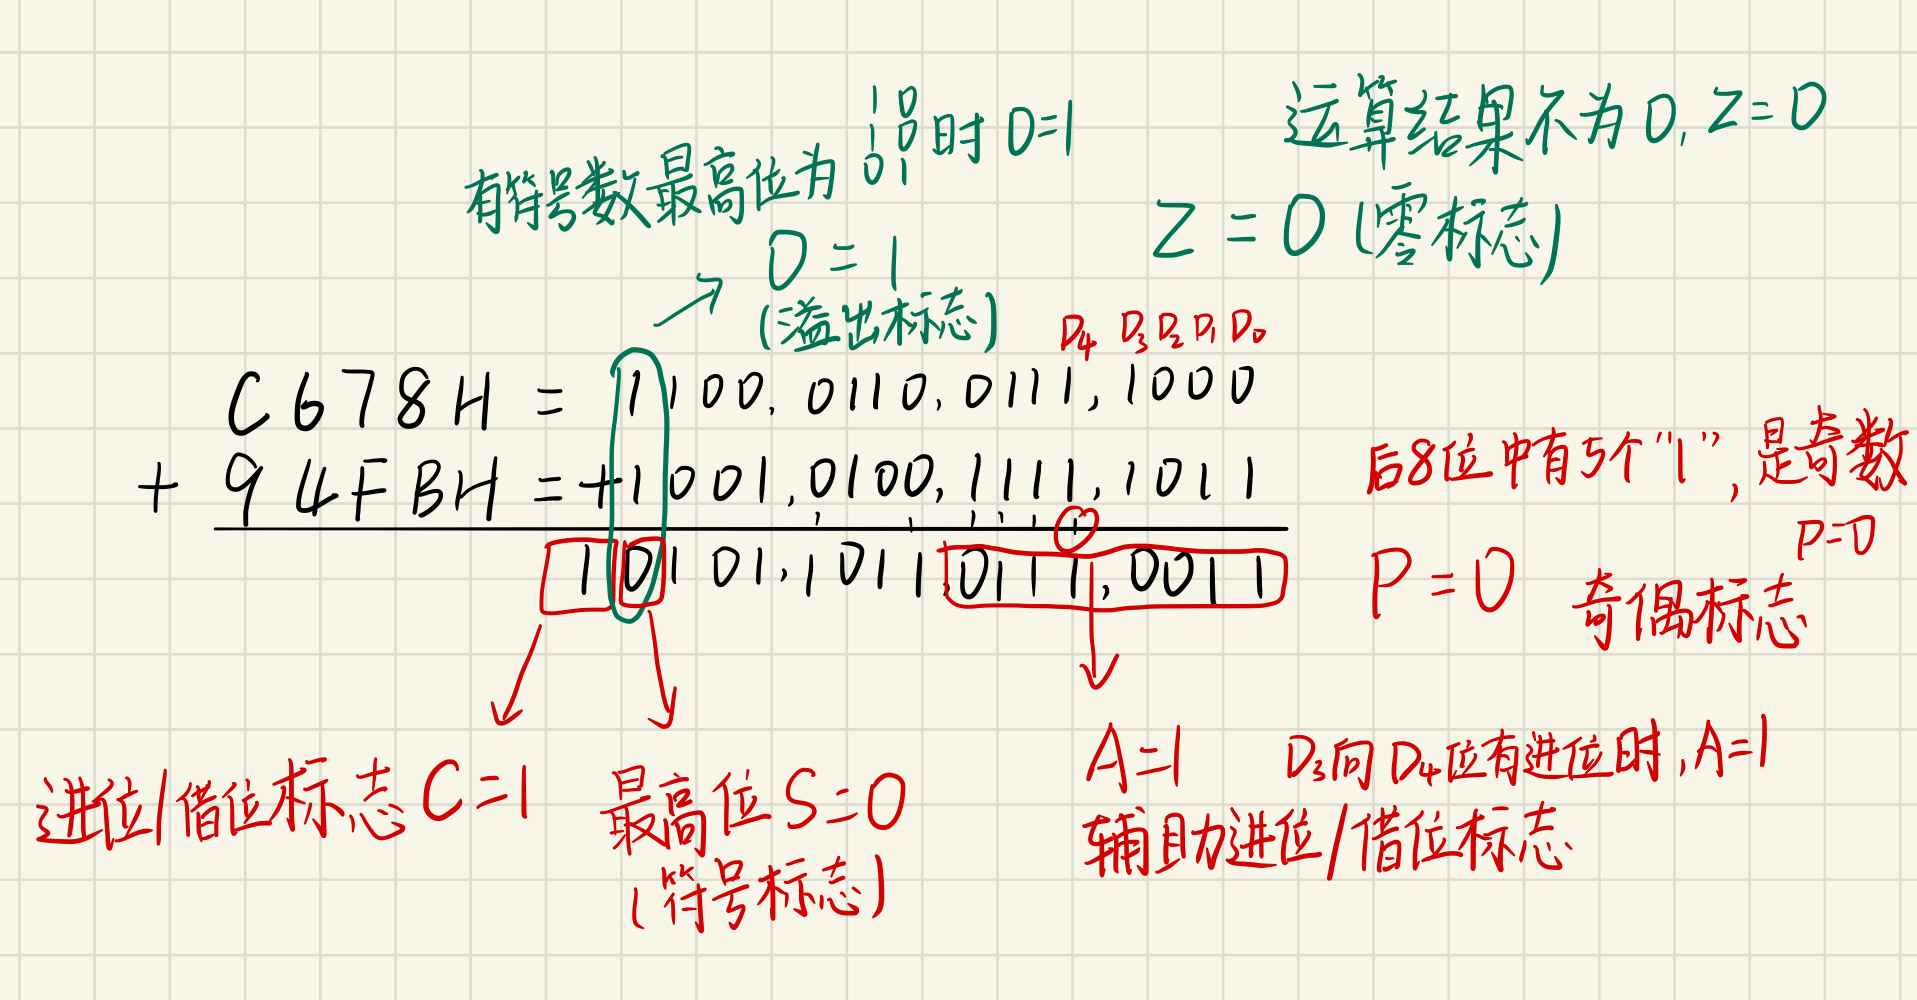 1 0
1 0
0 1
有符号数最高位为 时 O=1
O=1
(溢出标志)
运算结果不为0, Z=0
Z=0 (零标志)
D₄ D₃ D₂ D₁ D₀
C678H = 1100,0110,0111,1000
+ 94FBH =+1001,0100,1111,1011
1 0101,1011,0111,0011
后8位中有5个"1",是奇数
P=0
P=0 奇偶标志
进位/借位标志 C=1
最高位 S=0
(符号标志)
A=1 D₃向D₄位有进位时,A=1
辅助进位/借位标志